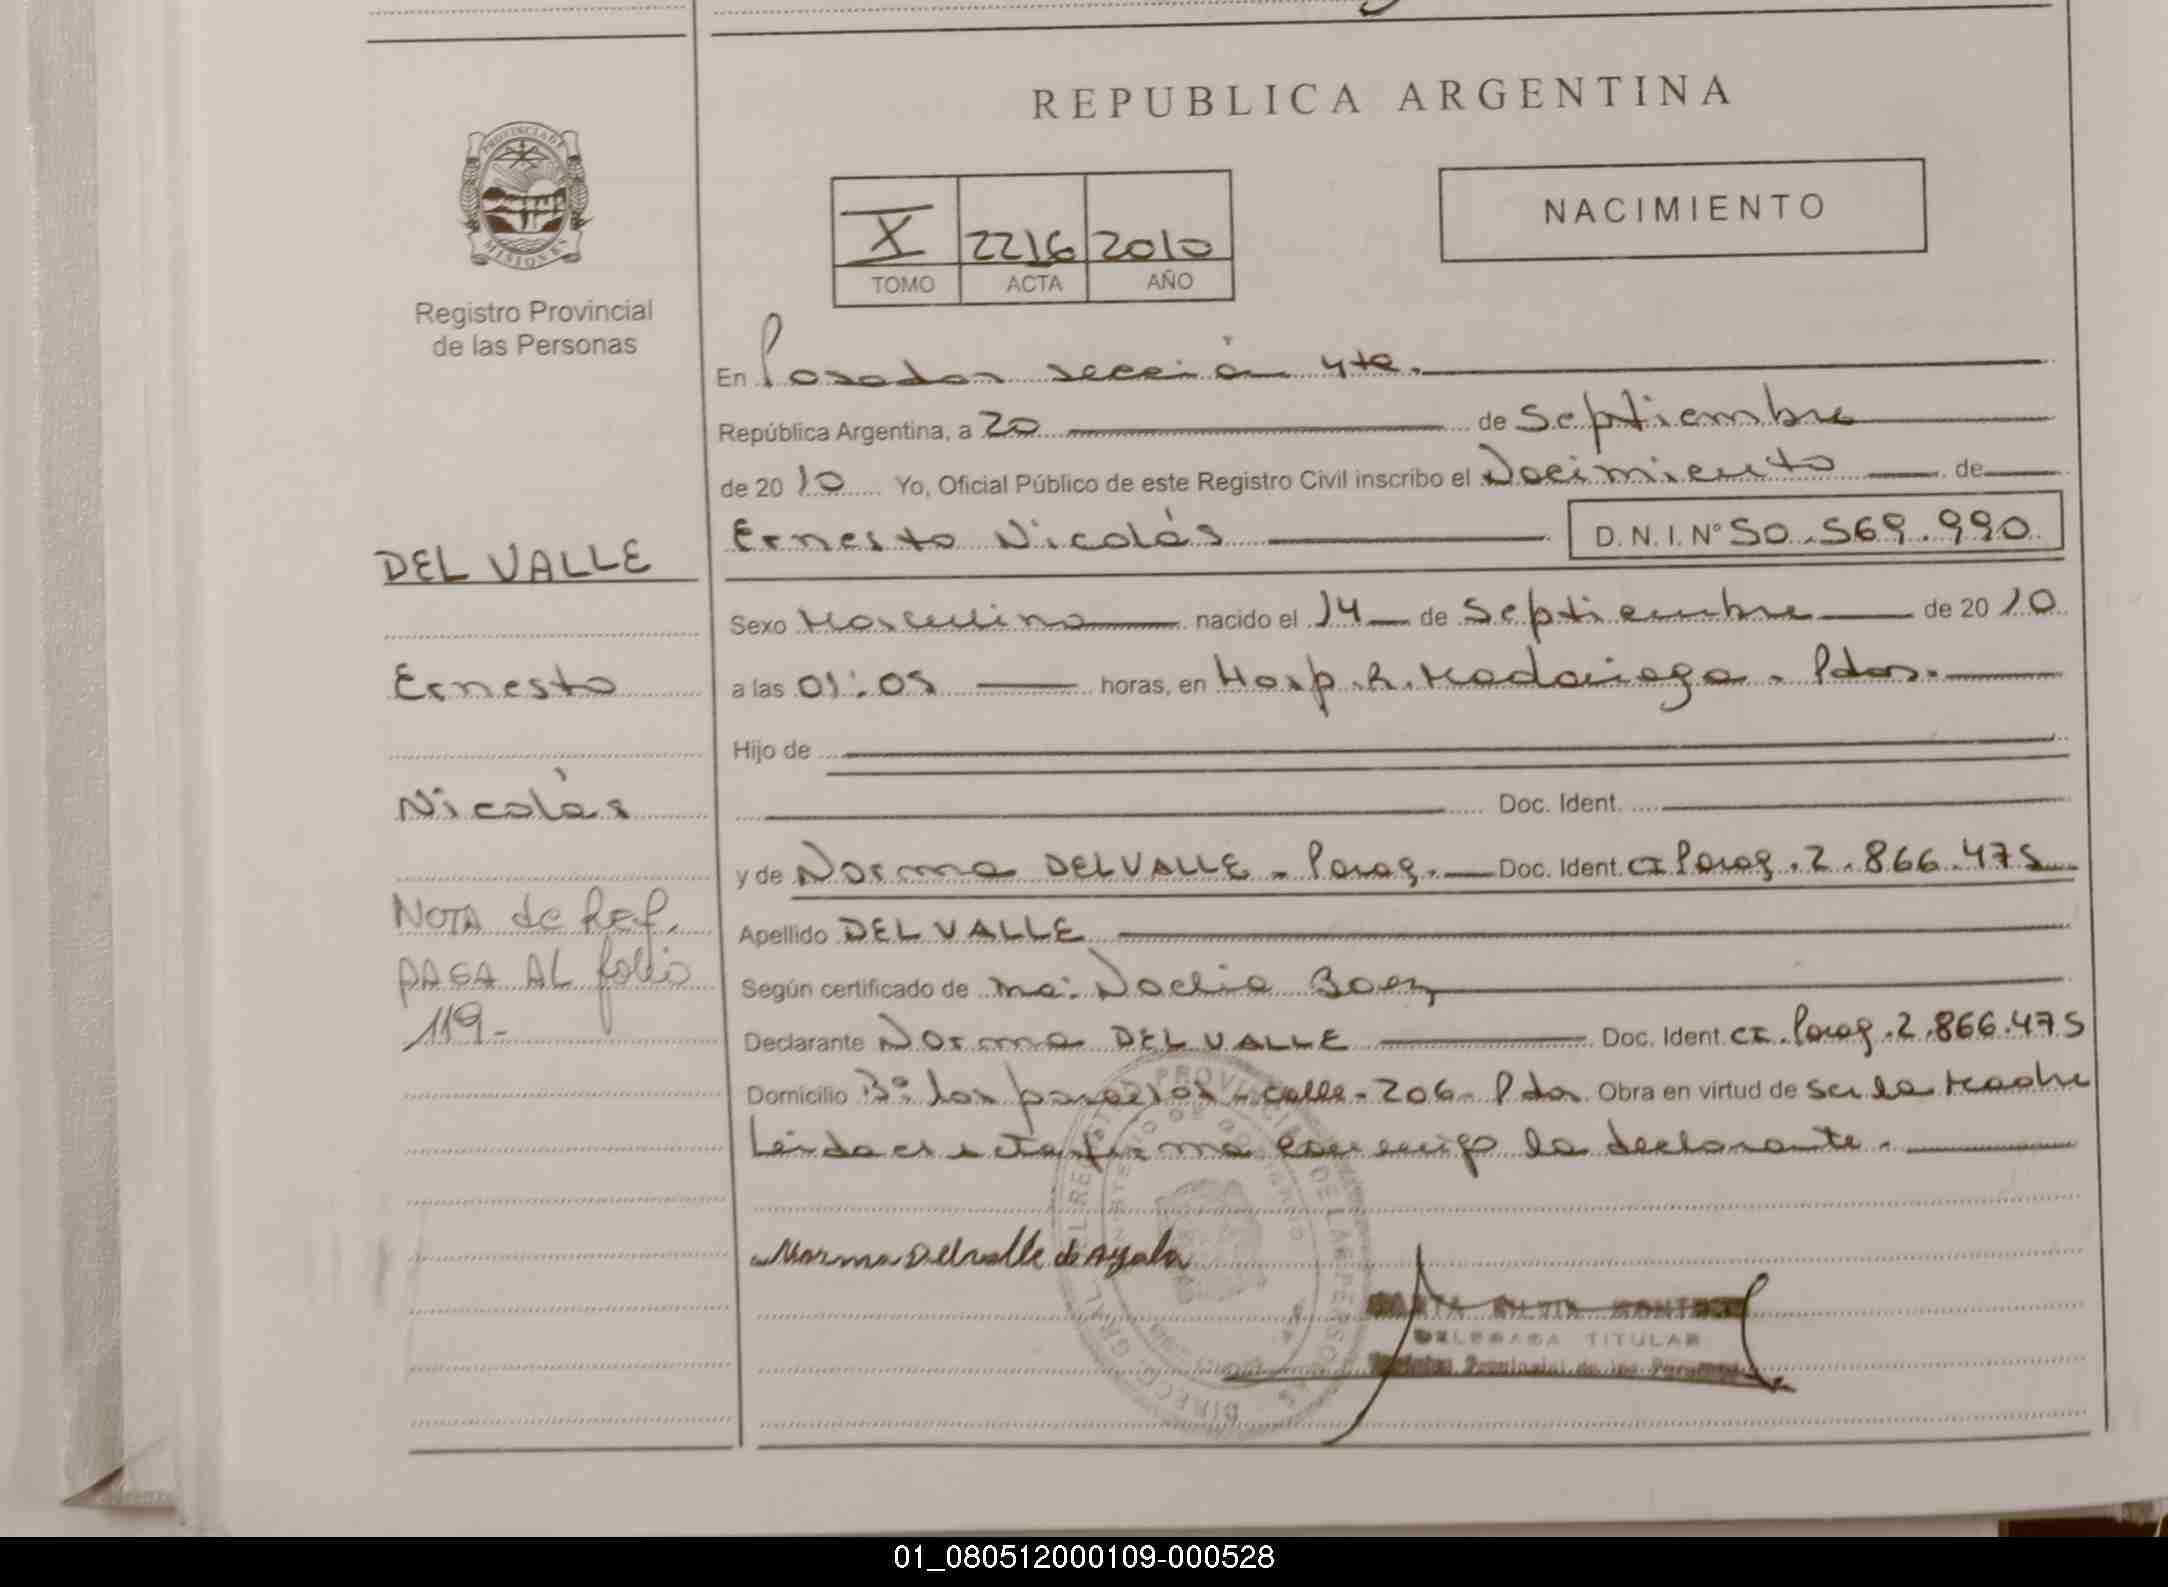 REPUBLICA ARGENTINA
PROVINCIA DE
MISIONES
Registro Provincial
de las Personas
X 2216 2010
TOMO ACTA AÑO
NACIMIENTO
En Posadas sección 4ta.
República Argentina, a 20 de Septiembre
de 2010 Yo, Oficial Público de este Registro Civil inscribo el Nacimiento de
Ernesto Nicolás D.N.I. Nº 50.569.990
DEL VALLE
Sexo Masculino nacido el 14 de Septiembre de 2010
Ernesto
a las 01:05 horas, en Hosp. R. Madariaga. Pdas.
Hijo de
Nicolás
Doc. Ident.
y de Norma DEL VALLE - Parag. Doc. Ident. CI Parag. 2.866.475
NOTA de REF.
PASA AL folio
119-
Apellido DEL VALLE
Según certificado de ma: Noelia Baez
Declarante Norma DEL VALLE Doc. Ident. CI. Parag. 2.866.475
Domicilio Bº Los calle - 206 - Pdas Obra en virtud de ser la Madre
Leida el acta firma conmigo la declarante.
Norma Delvalle de Ayala
DELEGADA TITULAR
Provincial de las Personas
01_080512000109-000528